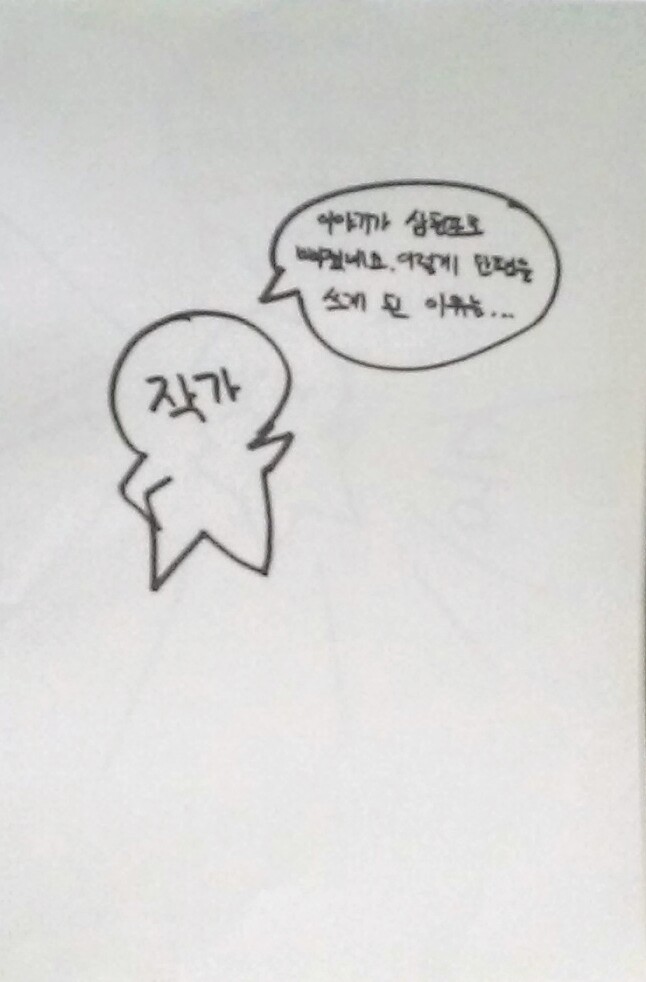 이야기가 삼천포로
빠졌네요. 이렇게 단편을
쓰게 된 이유는...
작가